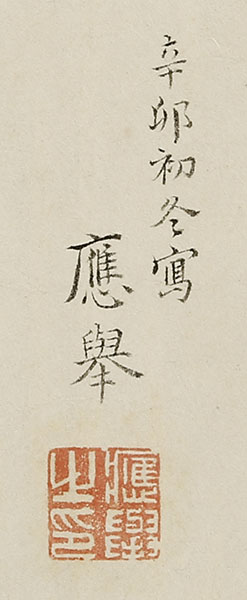 辛卯初冬寫
應舉
應舉之印